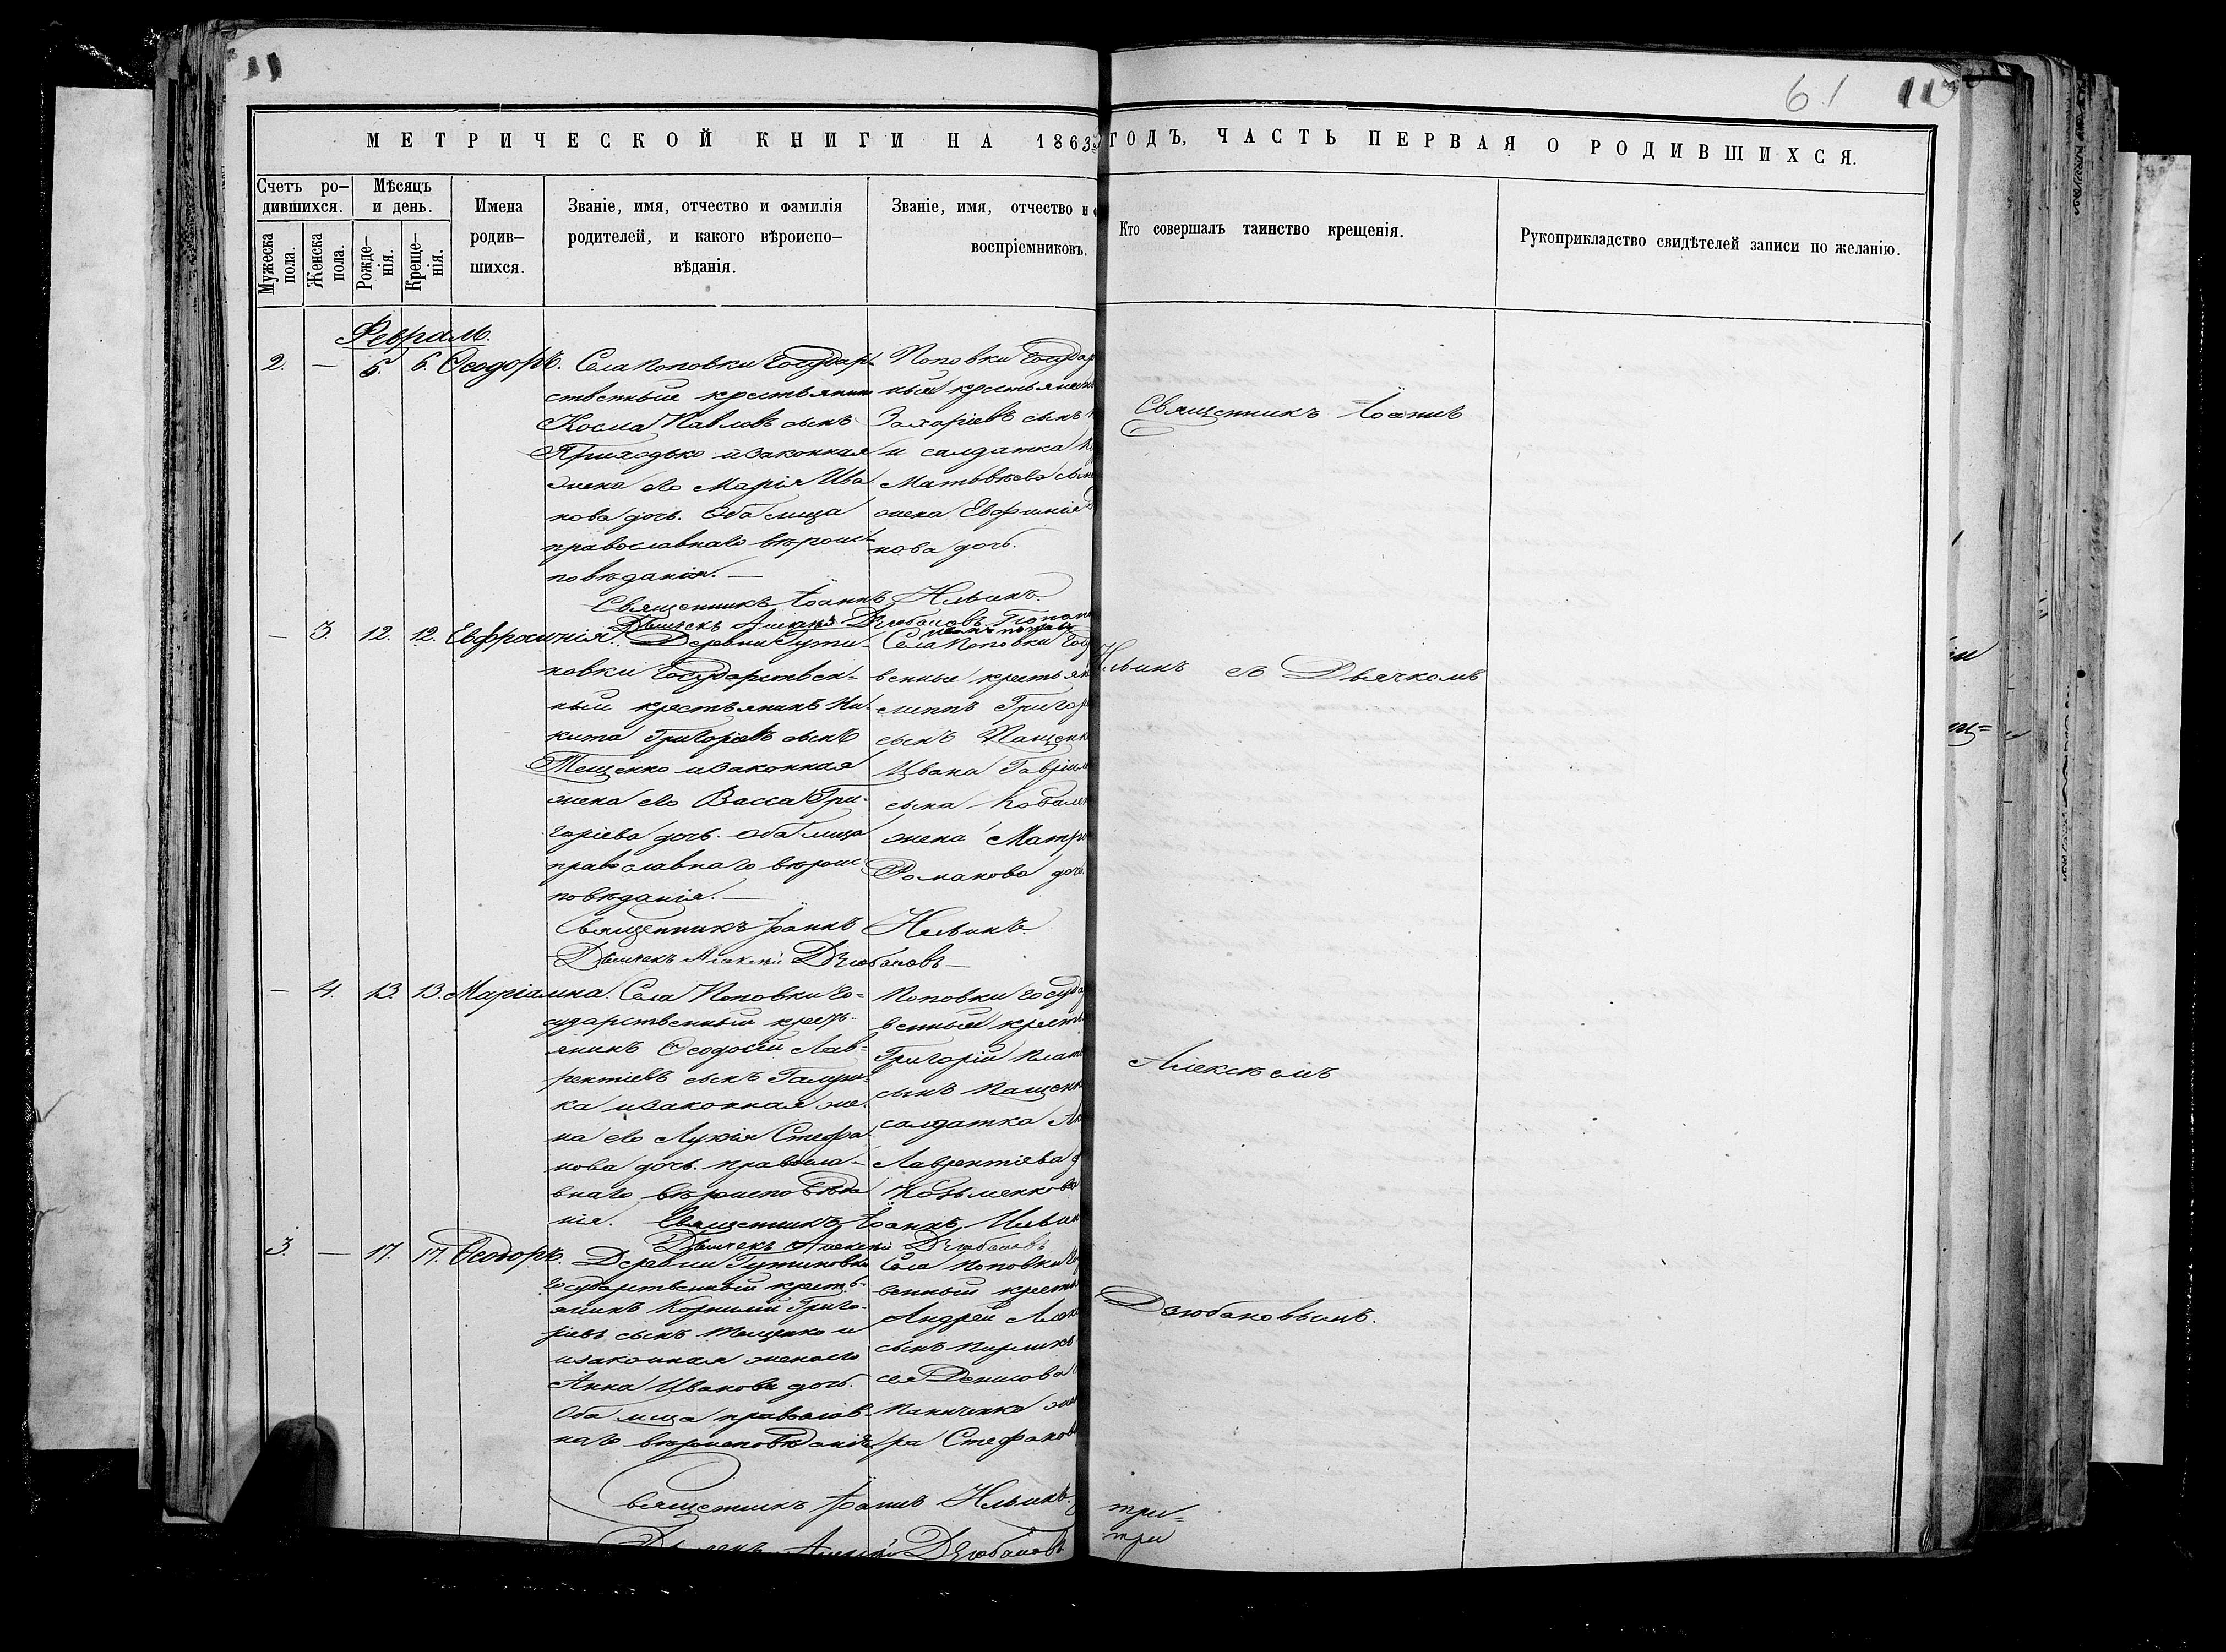 11
61
113
МЕТРИЧЕСКОЙ КНИГИ НА 1863й
ГОДЪ, ЧАСТЬ ПЕРВАЯ О РОДИВШИХСЯ.
Счетъ ро–
дившихся.
Мѣсяцъ
и день.
Мужеска
пола.
Женска
пола.
Рожде–
нія.
Креще–
нія.
Имена
родив–
шихся.
Званіе, имя, отчество и фамилія
родителей, и какого вѣроиспо–
вѣданія.
Званіе, имя, отчество и
воспріемниковъ.
Кто совершалъ таинство крещенія.
Рукоприкладство свидѣтелей записи по желанію.
Февраль.
2. — 5. 6. Ѳеодоръ.
Села Поповки Государ-
ственный крестьянинъ
Косма Павловъ сынъ
Приходько и законная
жена его Марія Ива
нова дочь. Оба лица
православнаго вѣроис-
повѣданія. —
Поповки Государ
ный крестьянинъ
Захаріевъ сынъ
и салдатка
Матвѣева сына
жена Евфимія
нова дочь.
Священникъ Іоаннъ Ильинъ.
Дьячекъ Алексѣй Дзюбановъ
— 3. 12. 12. Евфросинія.
Деревни Гути-
новки Государствен-
ный крестьянинъ Ни-
кита Григоріевъ сынъ
Тещенко и законная
жена его Васса Гри-
горіева дочь. Оба лица
православнаго вѣроис
повѣданія. —
Села Поповки Госу
венные крестьян
липпъ Григор
сынъ Пащенк
Ивана Гавріил
сына Ковален
жена Матр
Романова дочь.
Священникъ Іоаннъ Ильинъ.
Дьячекъ Алексѣй Дзюбановъ —
— 4. 13. 13. Маріамна.
Села Поповки Го=
сударственный кресть-
янинъ Ѳеодосій Лав=
рентіевъ сынъ
ка и законная же-
на его Лукія Стефа
нова дочь. правосла-
внаго вѣроисповѣда
нія.
Поповки Госуда
венный кресть
Григорій Плат
сынъ Пащенк
салдатка
Лаврентіева д
Козьменкова
Священникъ Іоаннъ Ильин
Дьячекъ Алексѣй Дзюбановъ
3. — 17. 17. Ѳеодоръ.
Деревни Гутиновки
Государственный кресть-
янинъ Корнилій Григо-
ріевъ сынъ Тещенко и
законная жена его
Анна Иванова дочь.
Оба лица православ-
наго вѣроисповѣданія
Села Поповки Го
венный кресть
Андрей
сынъ
Денисова
жен
ра Стефанова
Священникъ Іоаннъ Ильинъ.
Дьячекъ Алексѣй Дзюбановъ
Священникъ Іоаннъ
Ильинъ съ Дьячкомъ
Алексѣемъ
Дзюбановымъ.
три=
три